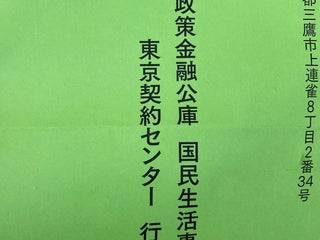 都三鷹市上連雀8丁目2番34号
政策金融公庫 国民生活事
東京契約センター 行